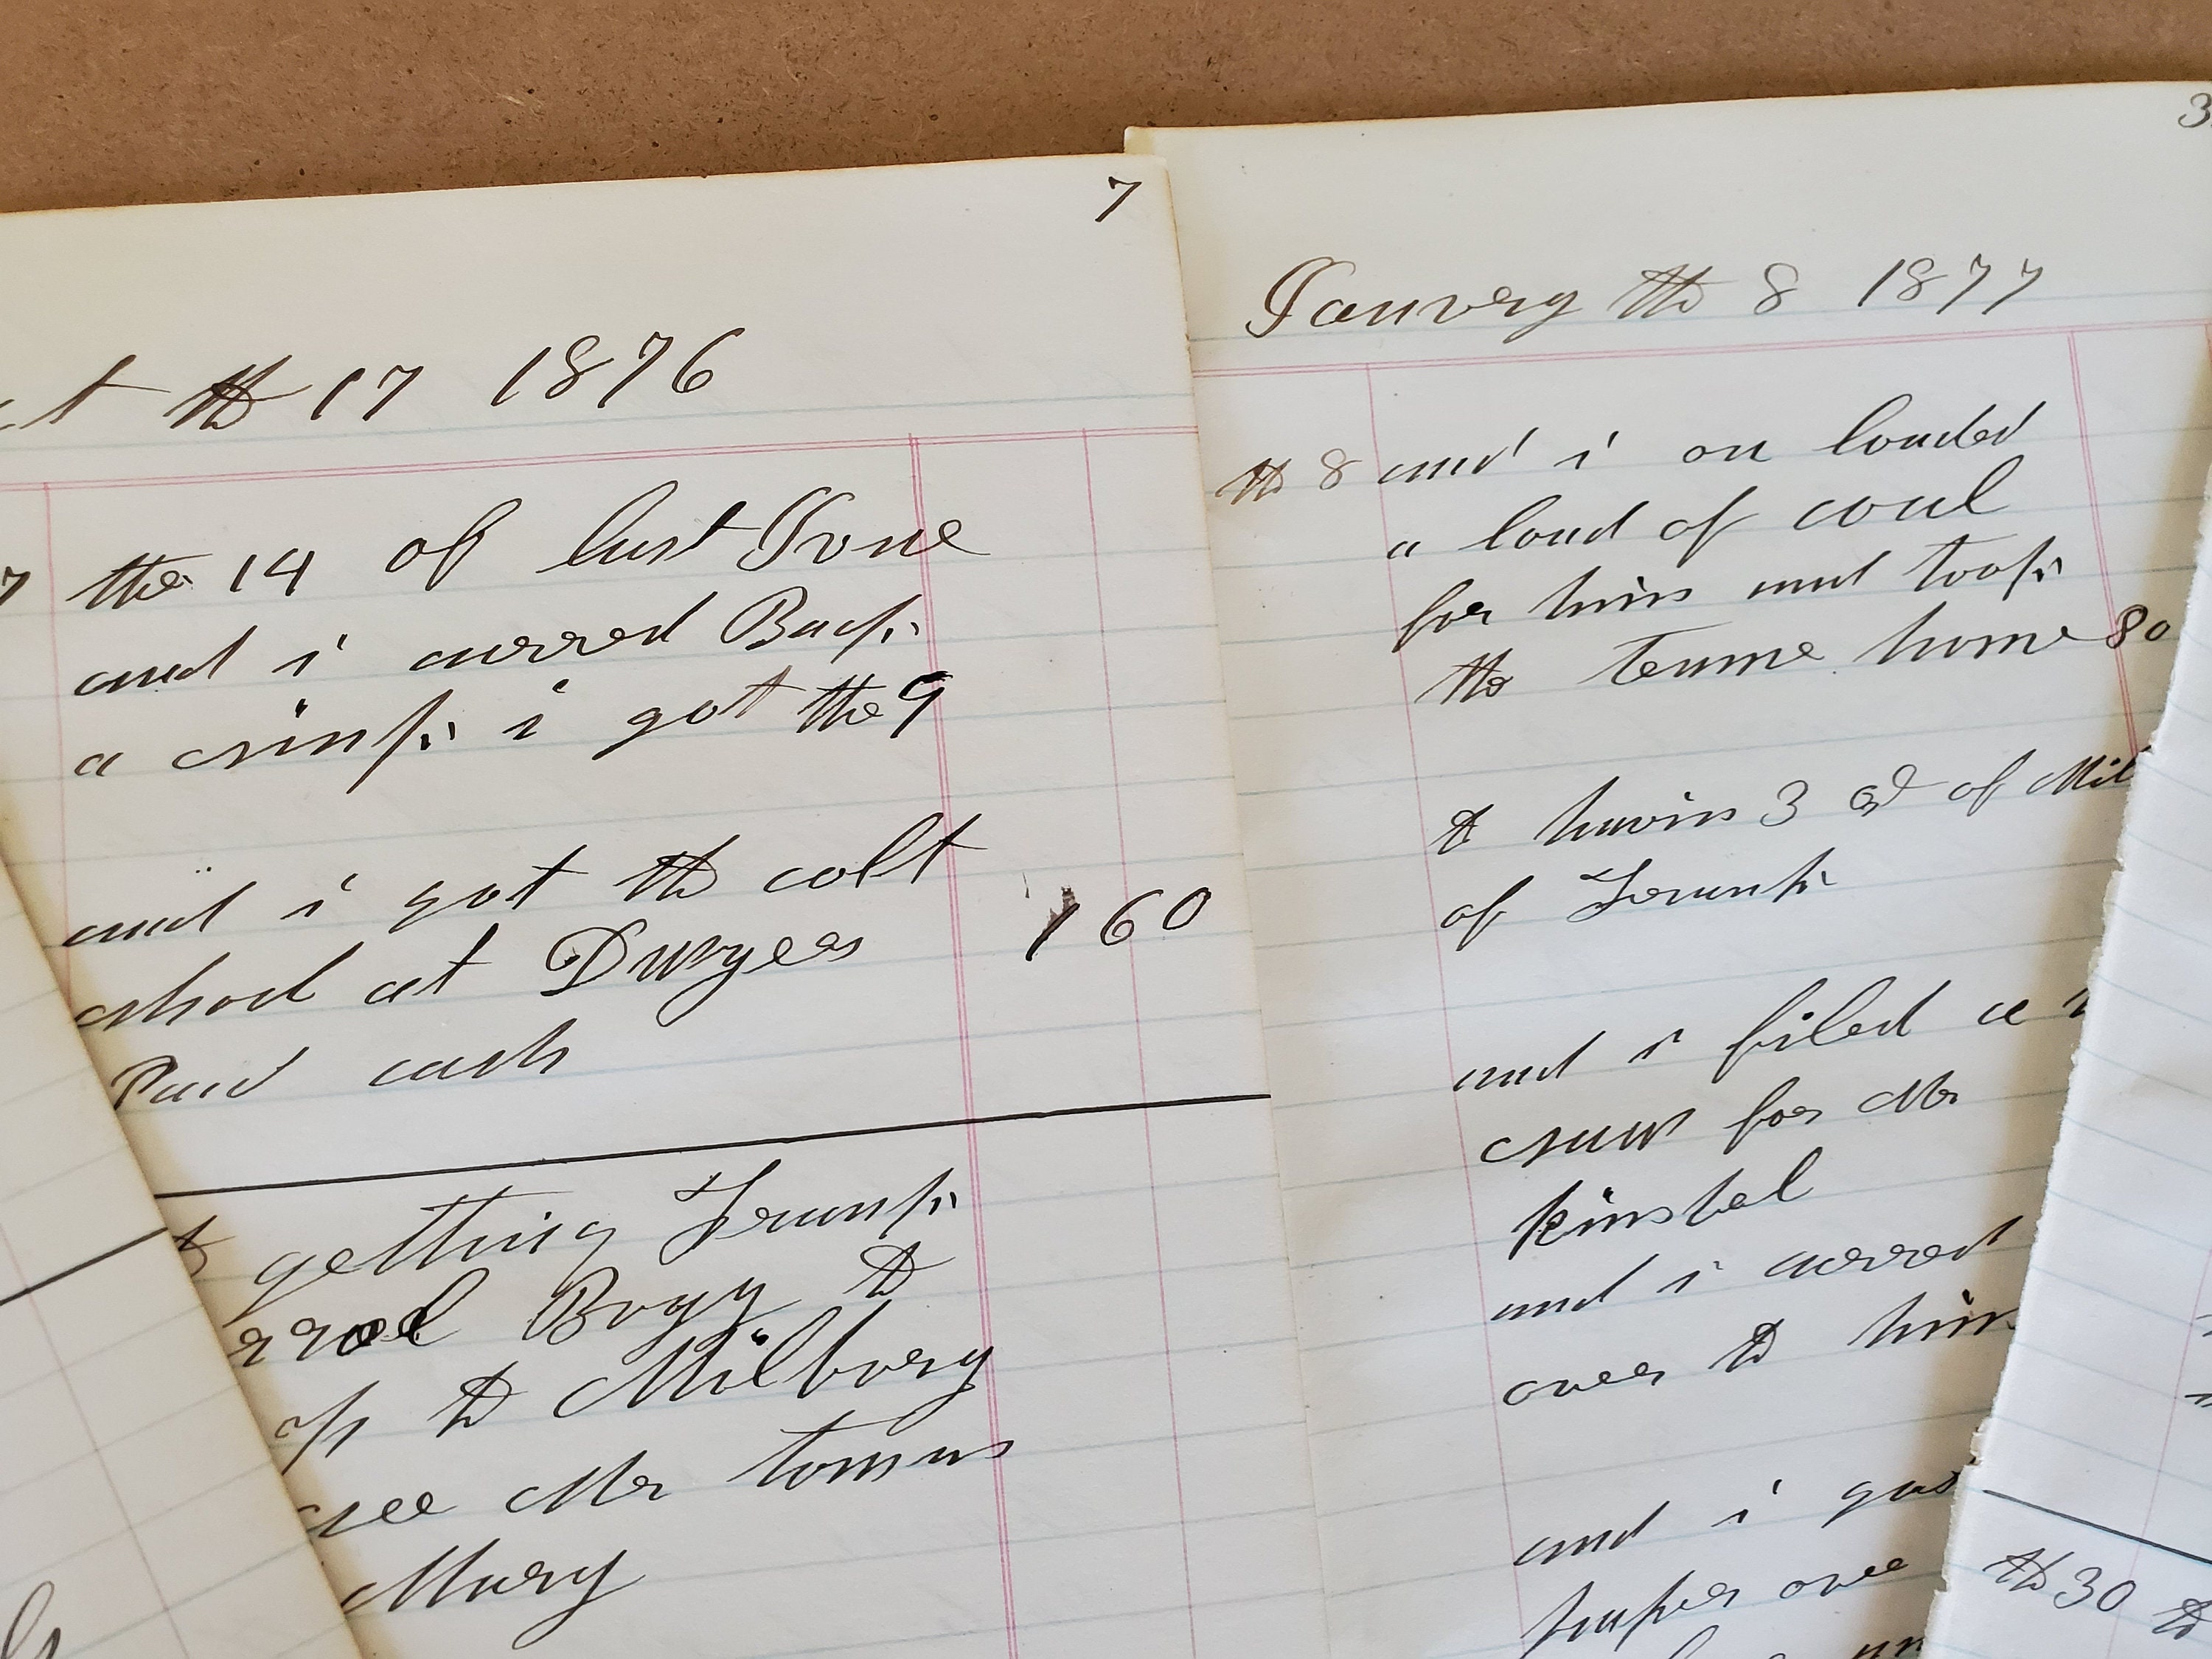 7
th 17 1876
7 the 14 of last Jone
and i carred Back
a sink i got the 9
and i got the colt
shod at Duryees 160
Paid cash
to getting Frank
Bogy to
to Milbory
see Mr tomas
Mary
3
Janvery the 8 1877
the 8 and i on loaded
a load of coal
for him and took
the teame home 80
to havin 3 qt of Mil
of Frank
and i filed a
saw for Mr
kinstal
and i carred
over to him
and i got
paper over
the 30 to